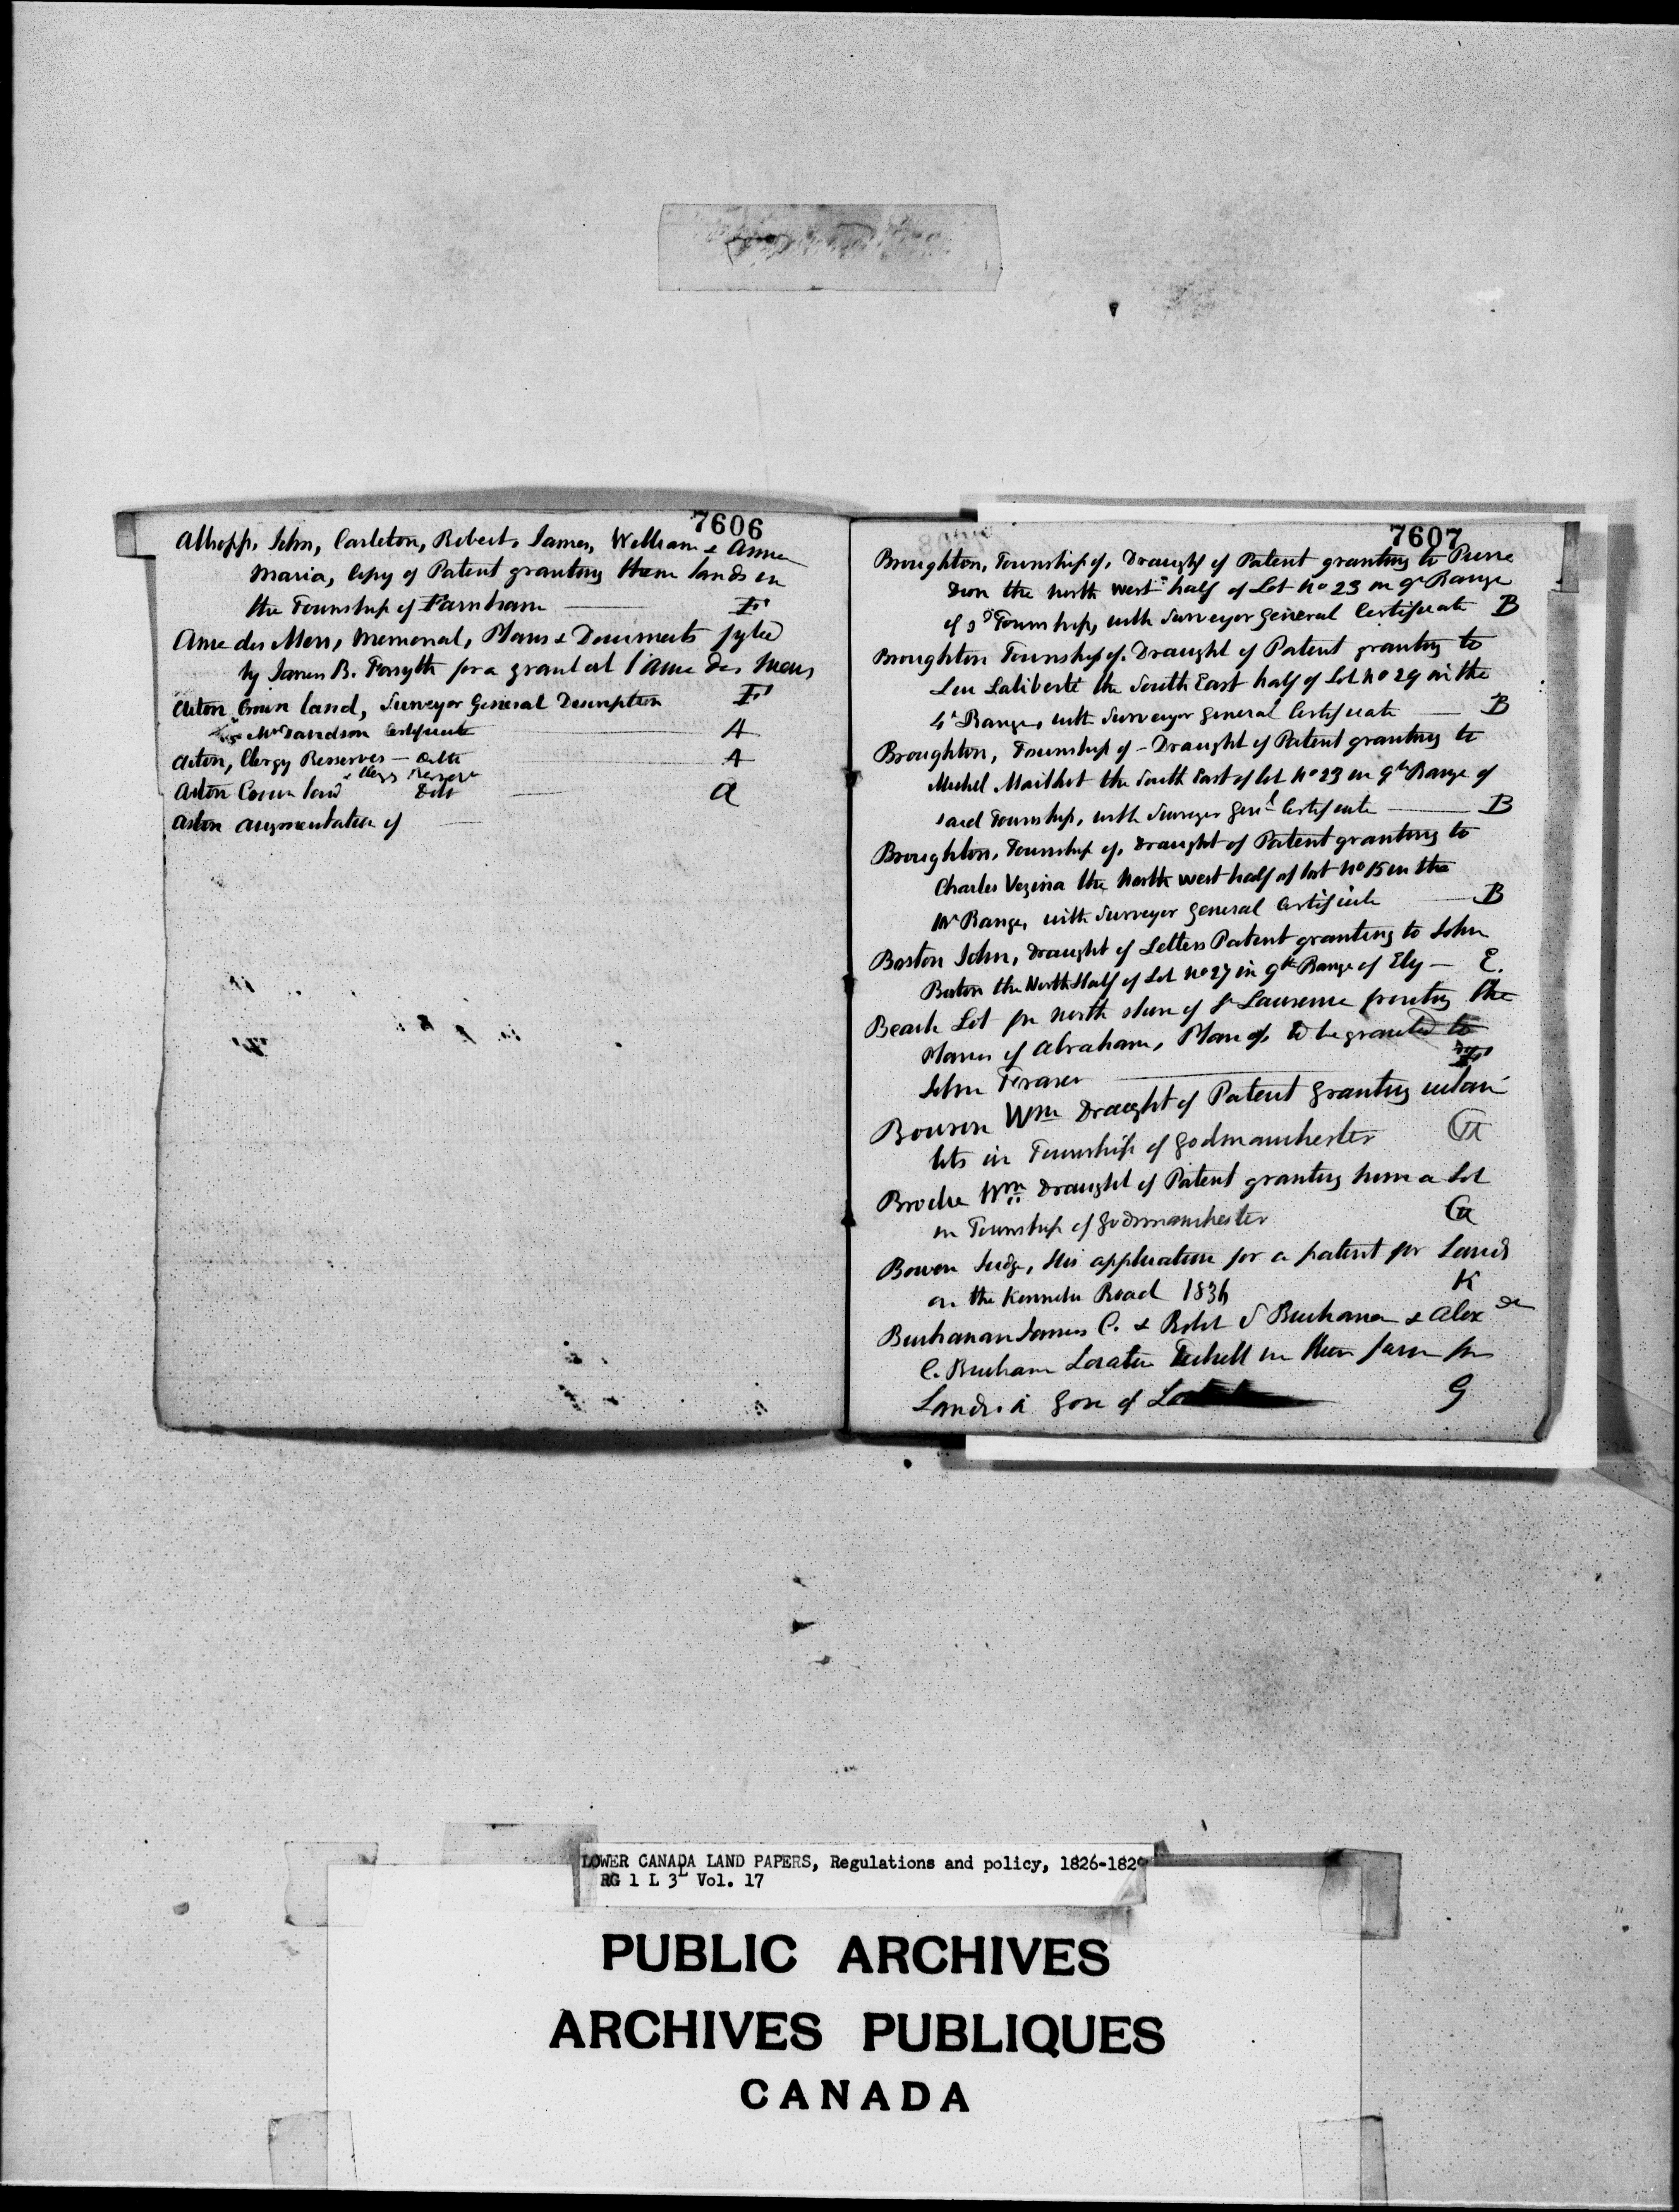 7606
Allsopp, John, Carleton, Robert, James, William & Anne
Maria, Copy of Patent granting them lands in
the Township of Farnham — F
Anse des Mers, Memorial, Plans & Documents fyled
by James B. Forsyth for a grant at l'anse des Mers
Acton Crown land, Surveyor General Description F
Mr Davidson Certificate — A
Acton, Clergy Reserves — Ditto — A
Aston Crown land & Clergy Reserve Ditto — a
Aston augmentation of —
7607
Broughton, Township of, Draught of Patent granting to Pierre
Dion the North West half of Lot No 23 in 9th Range
of sd Township, with Surveyor General Certificate B
Broughton Township of. Draught of Patent granting to
Laliberté the South East half of Lot No 29 in the
4th Range, with Surveyor General Certificate — B
Broughton, Township of – Draught of Patent granting to
Michel Mailhot the South East of lot No 23 in 9th Range of
said Township, with Surveyor Genl Certificate — B
Broughton, Township of, Draught of Patent granting to
Charles Vezina the North west half of lot No 15 in the
Range, with Surveyor General Certificate — B
Boston John, Draught of Letters Patent granting to John
Boston the North Half of Lot No 27 in 9th Range of Ely — E.
Beach Lot on North shore of St Lawrence fronting the
Plains of Abraham, Plan of, to be granted to
John Fraser — F
Wm Draught of Patent granting
lots in Township of Godmanchester G
Brodie Wm Draught of Patent granting him a Lot
in Township of Godmanchester G
Bowen Judge, His application for a patent for Lands
on the Kennebec Road 1836 K
Buchanan James C. & Robt S Buchanan & Alexr
C. Buchanan Location Ticket in their favor for
Lands in Gore of G
LOWER CANADA LAND PAPERS, Regulations and policy, 1826-1829
RG 1 L 3L Vol. 17
PUBLIC ARCHIVES
ARCHIVES PUBLIQUES
CANADA